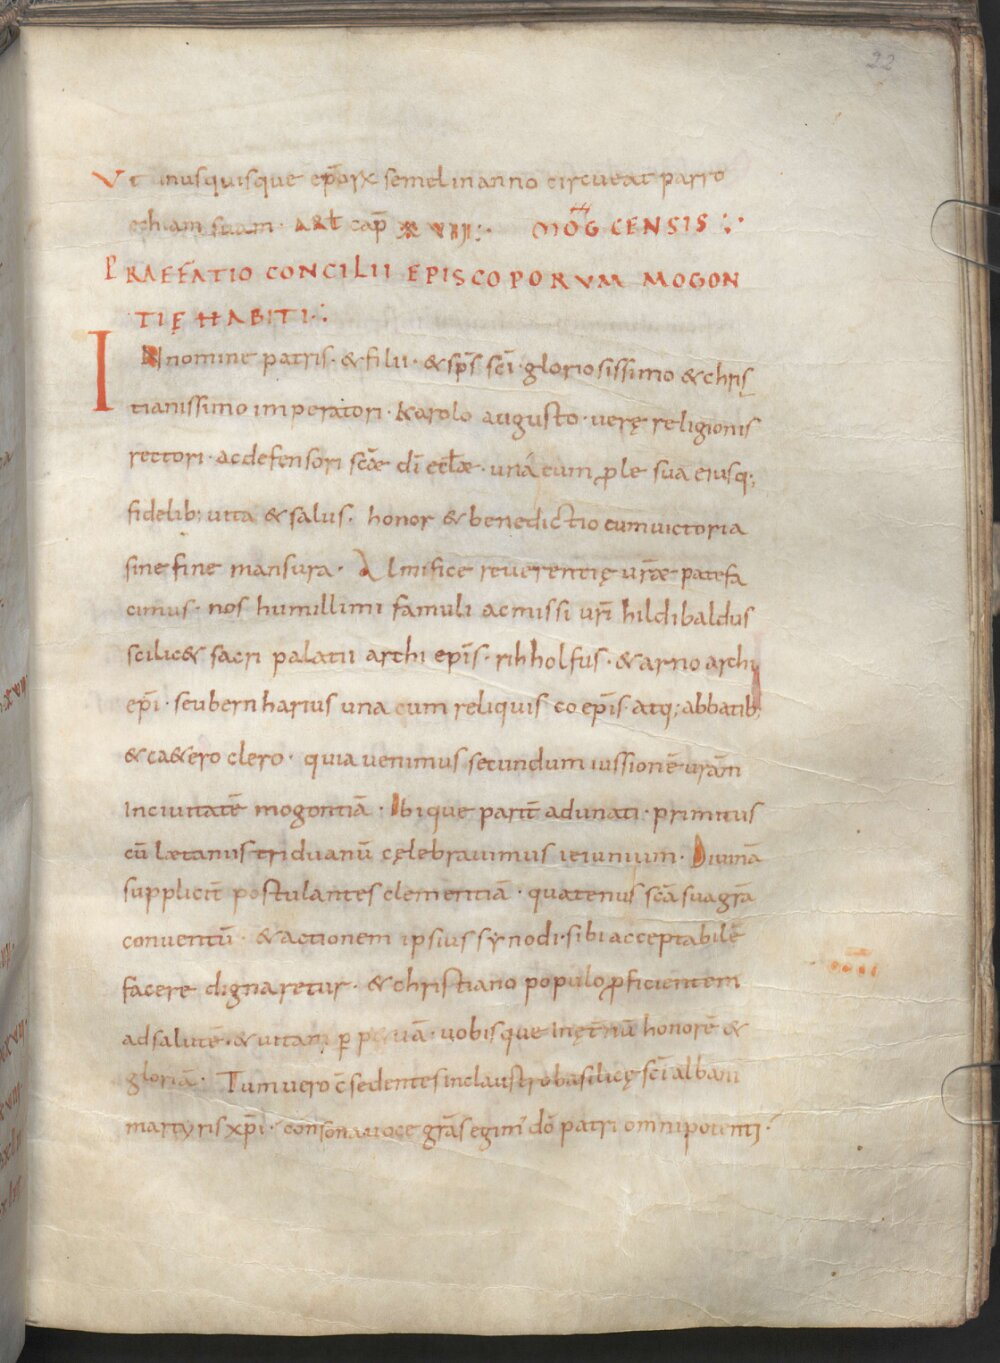 22
Ut unusquisque ep̄orx semel in anno circueat parro
chiam suam · arl̄ cap̄ xvii :· MOḠCENSIS :·
PRAEFATIO CONCILII EPISCOPORVM MOGON
TIĘ HABITI :·
IN nomine patris · & filii · & sp̄s sc̄i · gloriosissimo & chris
tianissimo imperatori · Karolo augusto · uerę religionis
rectori · ac defensori sc̄ae dī eccl̄ae · una cum ꝓle sua eiusq;
fidelib; uita & salus · honor & benedictio cum uictoria
sine fine mansura · Almifice reuerentię ur̄ae patefa
cimus · nos humillimi famuli ac missi ur̄i hildibaldus
scilic& sacri palatii archi ep̄is · rihholfus · & arno archi
ep̄i · seu bernharius una cum reliquis co ep̄is atq; abbatib;
& ca&ero clero · quia uenimus secundum iussionē ur̄am
In ciuitatē mogontiā · Ibique parit̄ adunati · primitus
cū lætaniis triduanū cęlebrauimus ieiunium · Diuinā
supplicit̄ postulantes clementiā · quatenus sc̄a sua gr̄a
conuentū · & actionem ipsius synodi · sibi acceptabilē
facere dignaretur · & christiano populo ꝓficientem
ad salutē · & uitam ꝑp&uā · uobisque In ęt̄nū honorē &
gloriā · Tum uero c̄sedentes in claustro basilicę sc̄i albani
martyris xp̄i · consona uoce gr̄as egim' dō patri omnipotenti ·